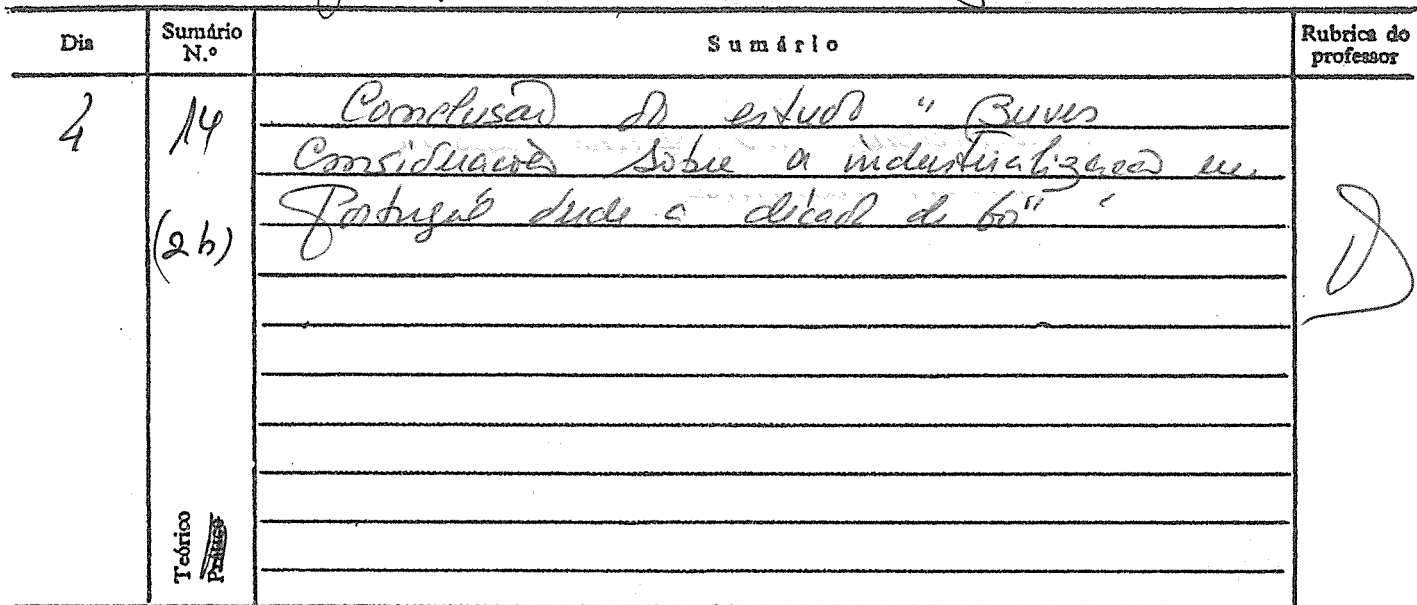 Dia
Sumário N.º
Sumário
Rubrica do professor
4
14
(2h)
Conclusão do estudo "Breves
Considerações sobre a industrialização em
Portugal desde a década de 60"
Teórico
Prático